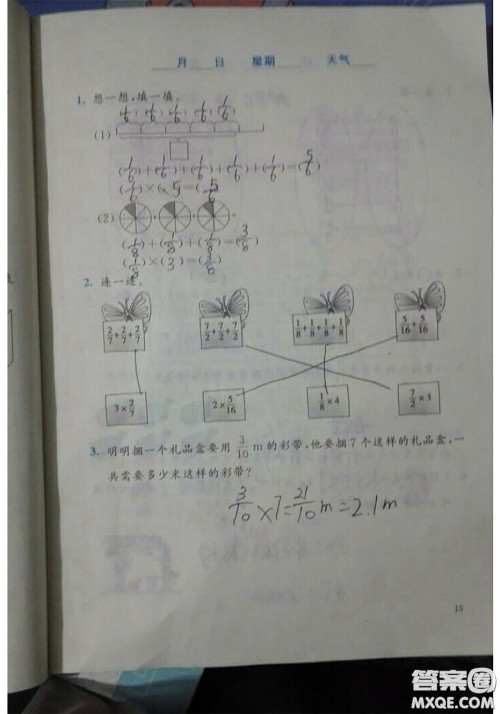 月 日 星期 天气
1. 想一想,填一填。
(1/6) (1/6) (1/6) (1/6) (1/6)
(1)
(1/6)+(1/6)+(1/6)+(1/6)+(1/6)=(5/6)
(1/6)×(5)=(5/6)
(2)
(1/8)+(1/8)+(1/8)=(3/8)
(1/8)×(3)=(3/8)
2. 连一连。
2/7+2/7+2/7 7/2+7/2+7/2 1/8+1/8+1/8+1/8 5/16+5/16
3×2/7 2×5/16 1/8×4 7/2×3
3. 明明捆一个礼品盒要用 3/10 m的彩带,他要捆7个这样的礼品盒,一
共需要多少米这样的彩带?
3/10×7=21/10m=2.1m
15
答案圈
MXQE.COM